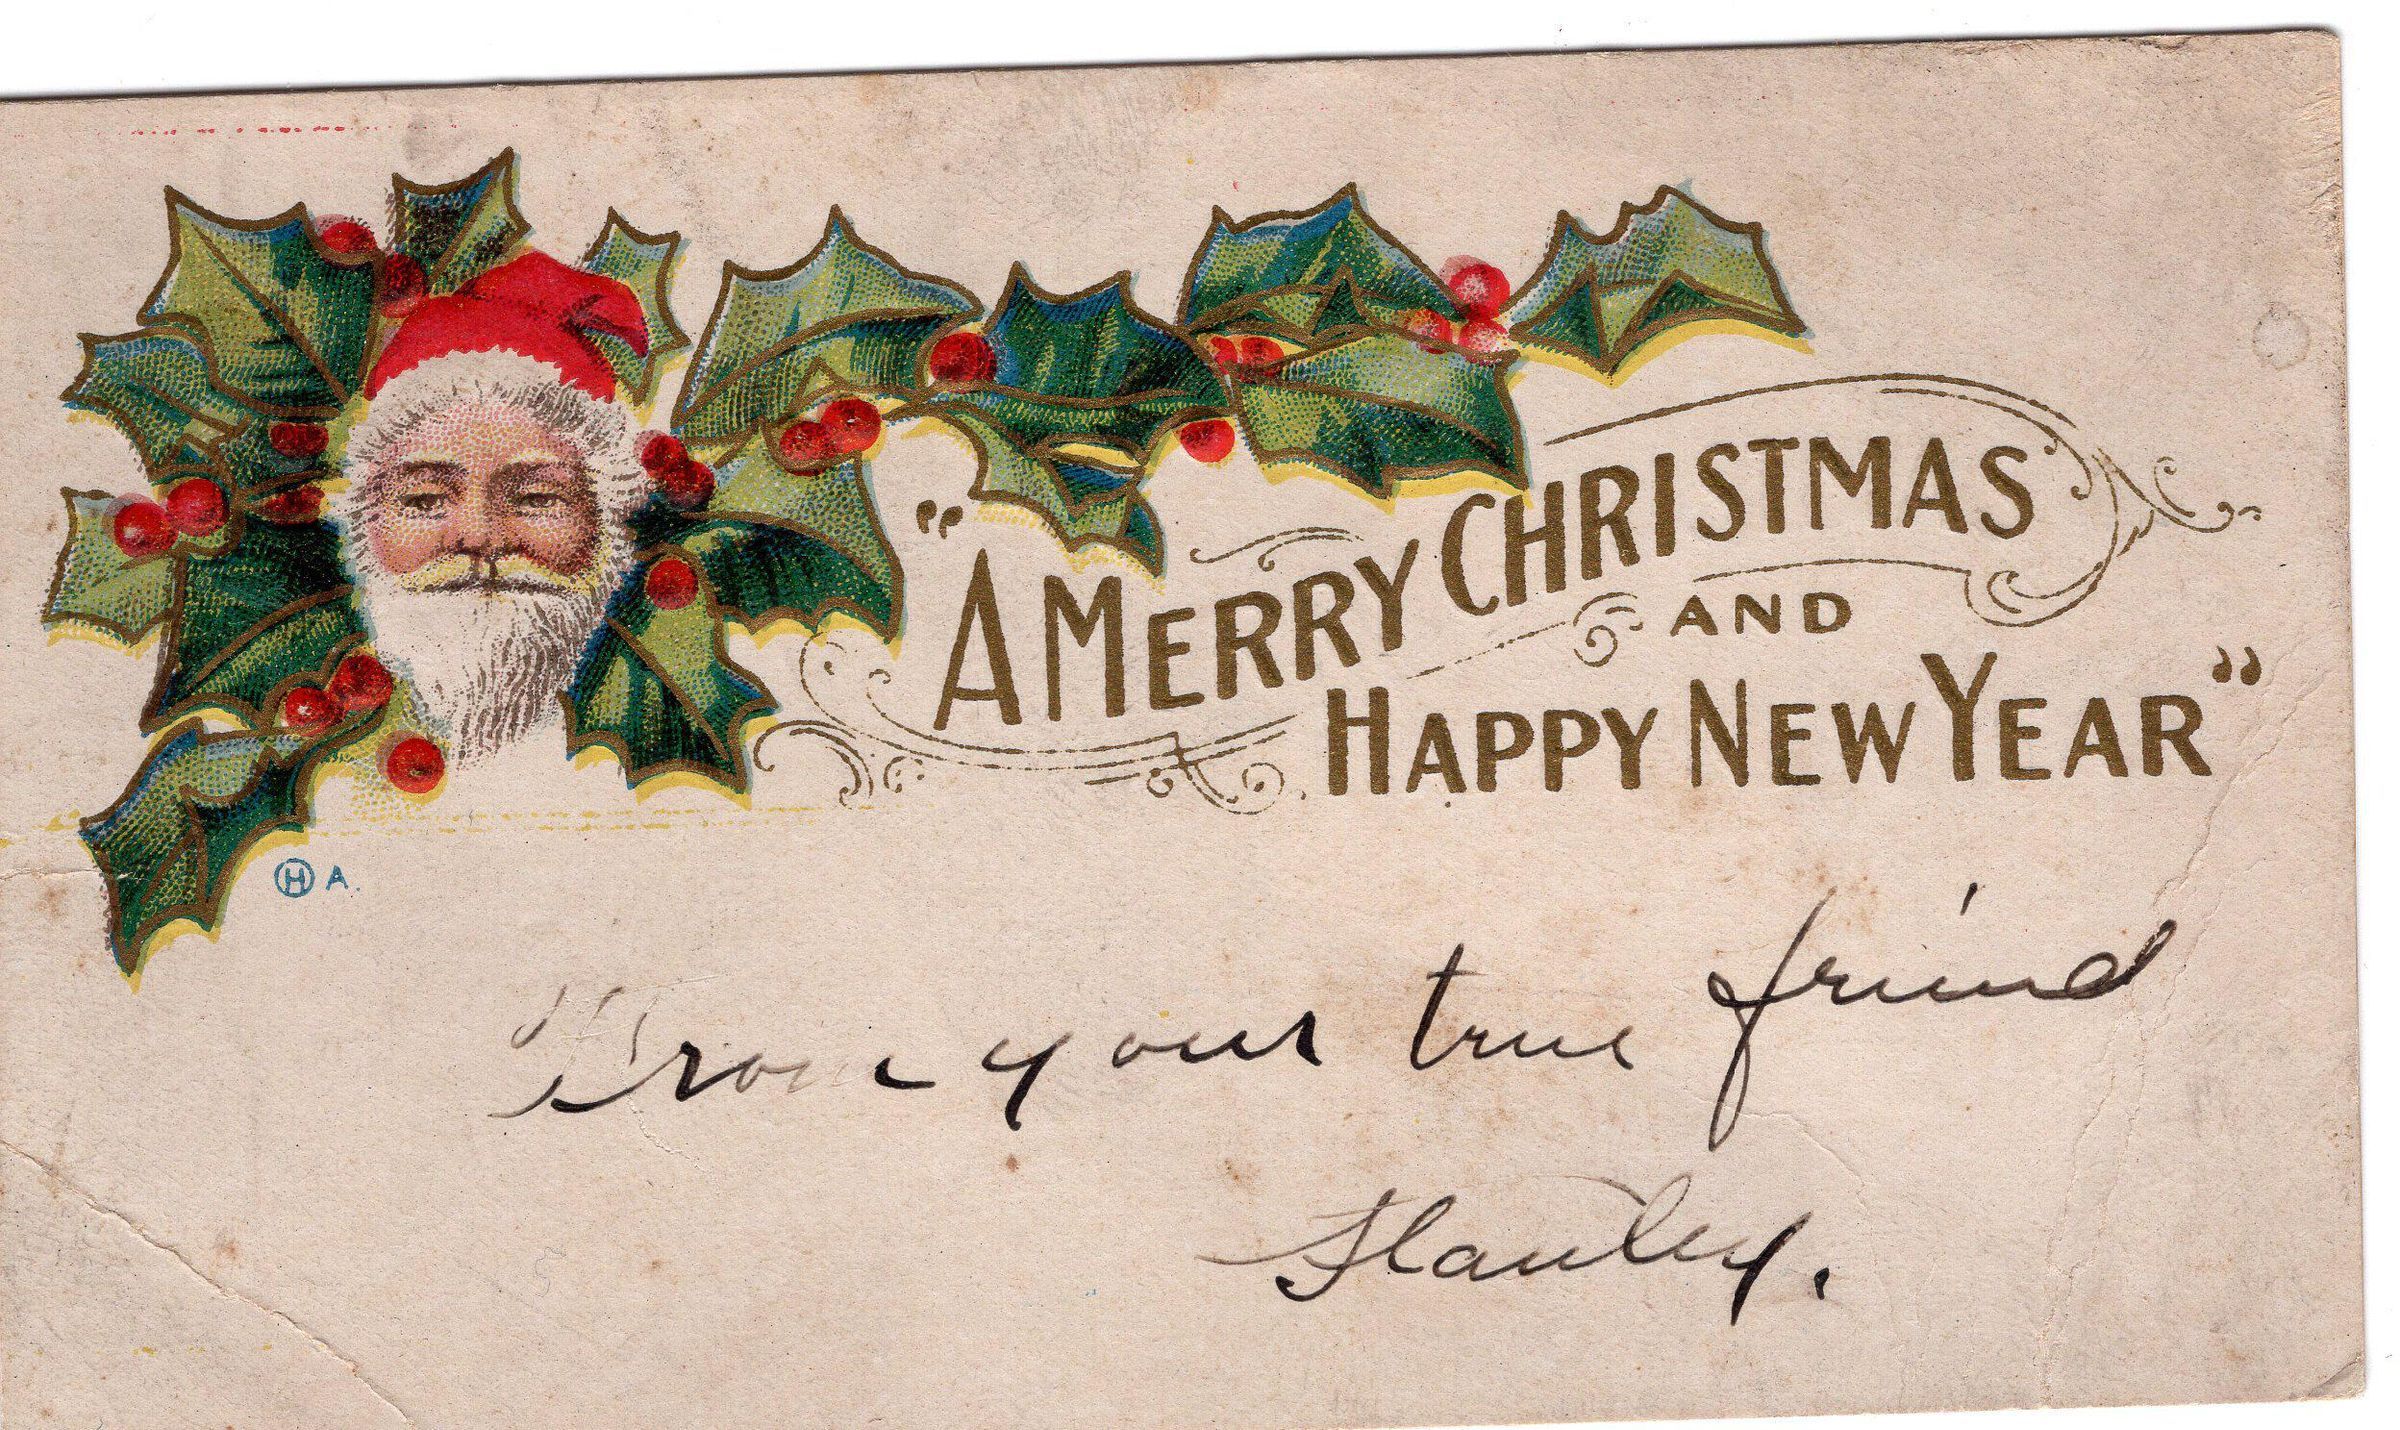 "A MERRY CHRISTMAS
AND
HAPPY NEW YEAR"
H A.
From your true friend
Stanley.